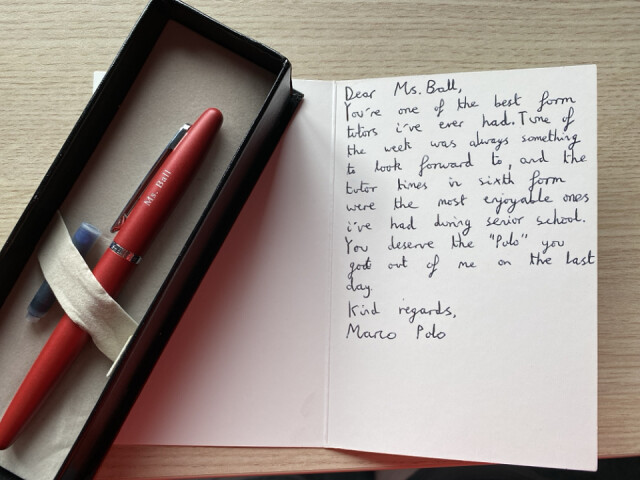 Ms. Ball
Dear Ms. Ball,
You're one of the best form
tutors i've ever had. Tune of
the week was always something
to look forward to, and the
tutor times in sixth form
were the most enjoyable ones
i've had during senior school.
You deserve the "Polo" you
got out of me on the last
day.
Kind regards,
Marco Polo